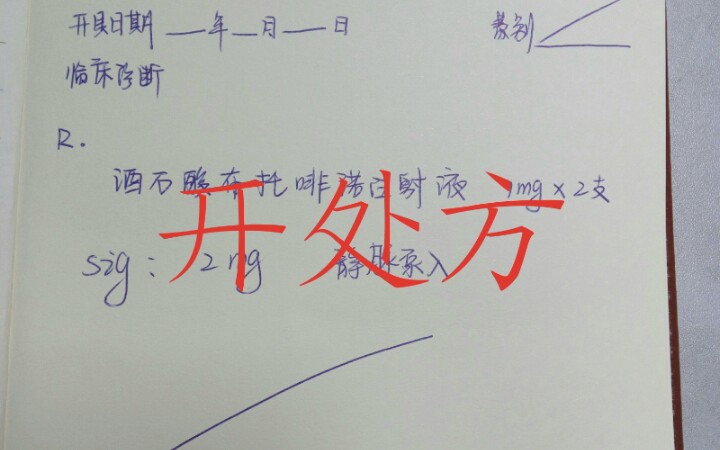 开具日期 ——年——月——日 费别
临床诊断
R.
酒石酸布托啡诺注射液 1mg×2支
sig: 2mg 静脉泵入
开处方